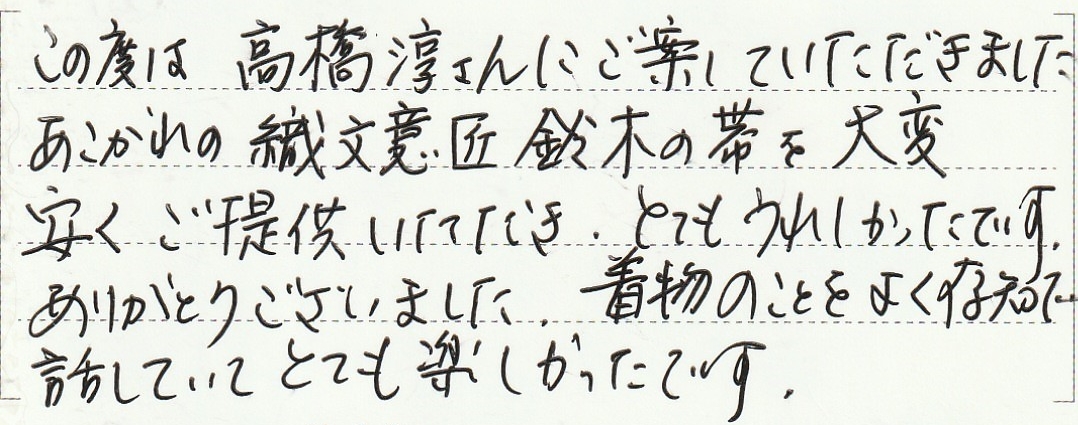 この度は 高橋淳さんにご案していただきました
あこがれの 織文意匠 鈴木の帯を 大変
安く ご提供いただき、とてもうれしかったです。
ありがとうございました。着物のことをよく存知で
話していて とても楽しかったです。